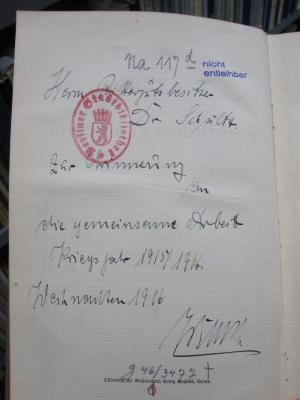 Na 117 d
nicht
entleihbar
Herrn Rittergutsbesitzer
Dr Schultz
Berliner Stadtbibliothek
zur Erinnerung
an
die gemeinsame Arbeit
Kriegsjahr 1915/1916
Weihnachten 1916
g 46/3477 +